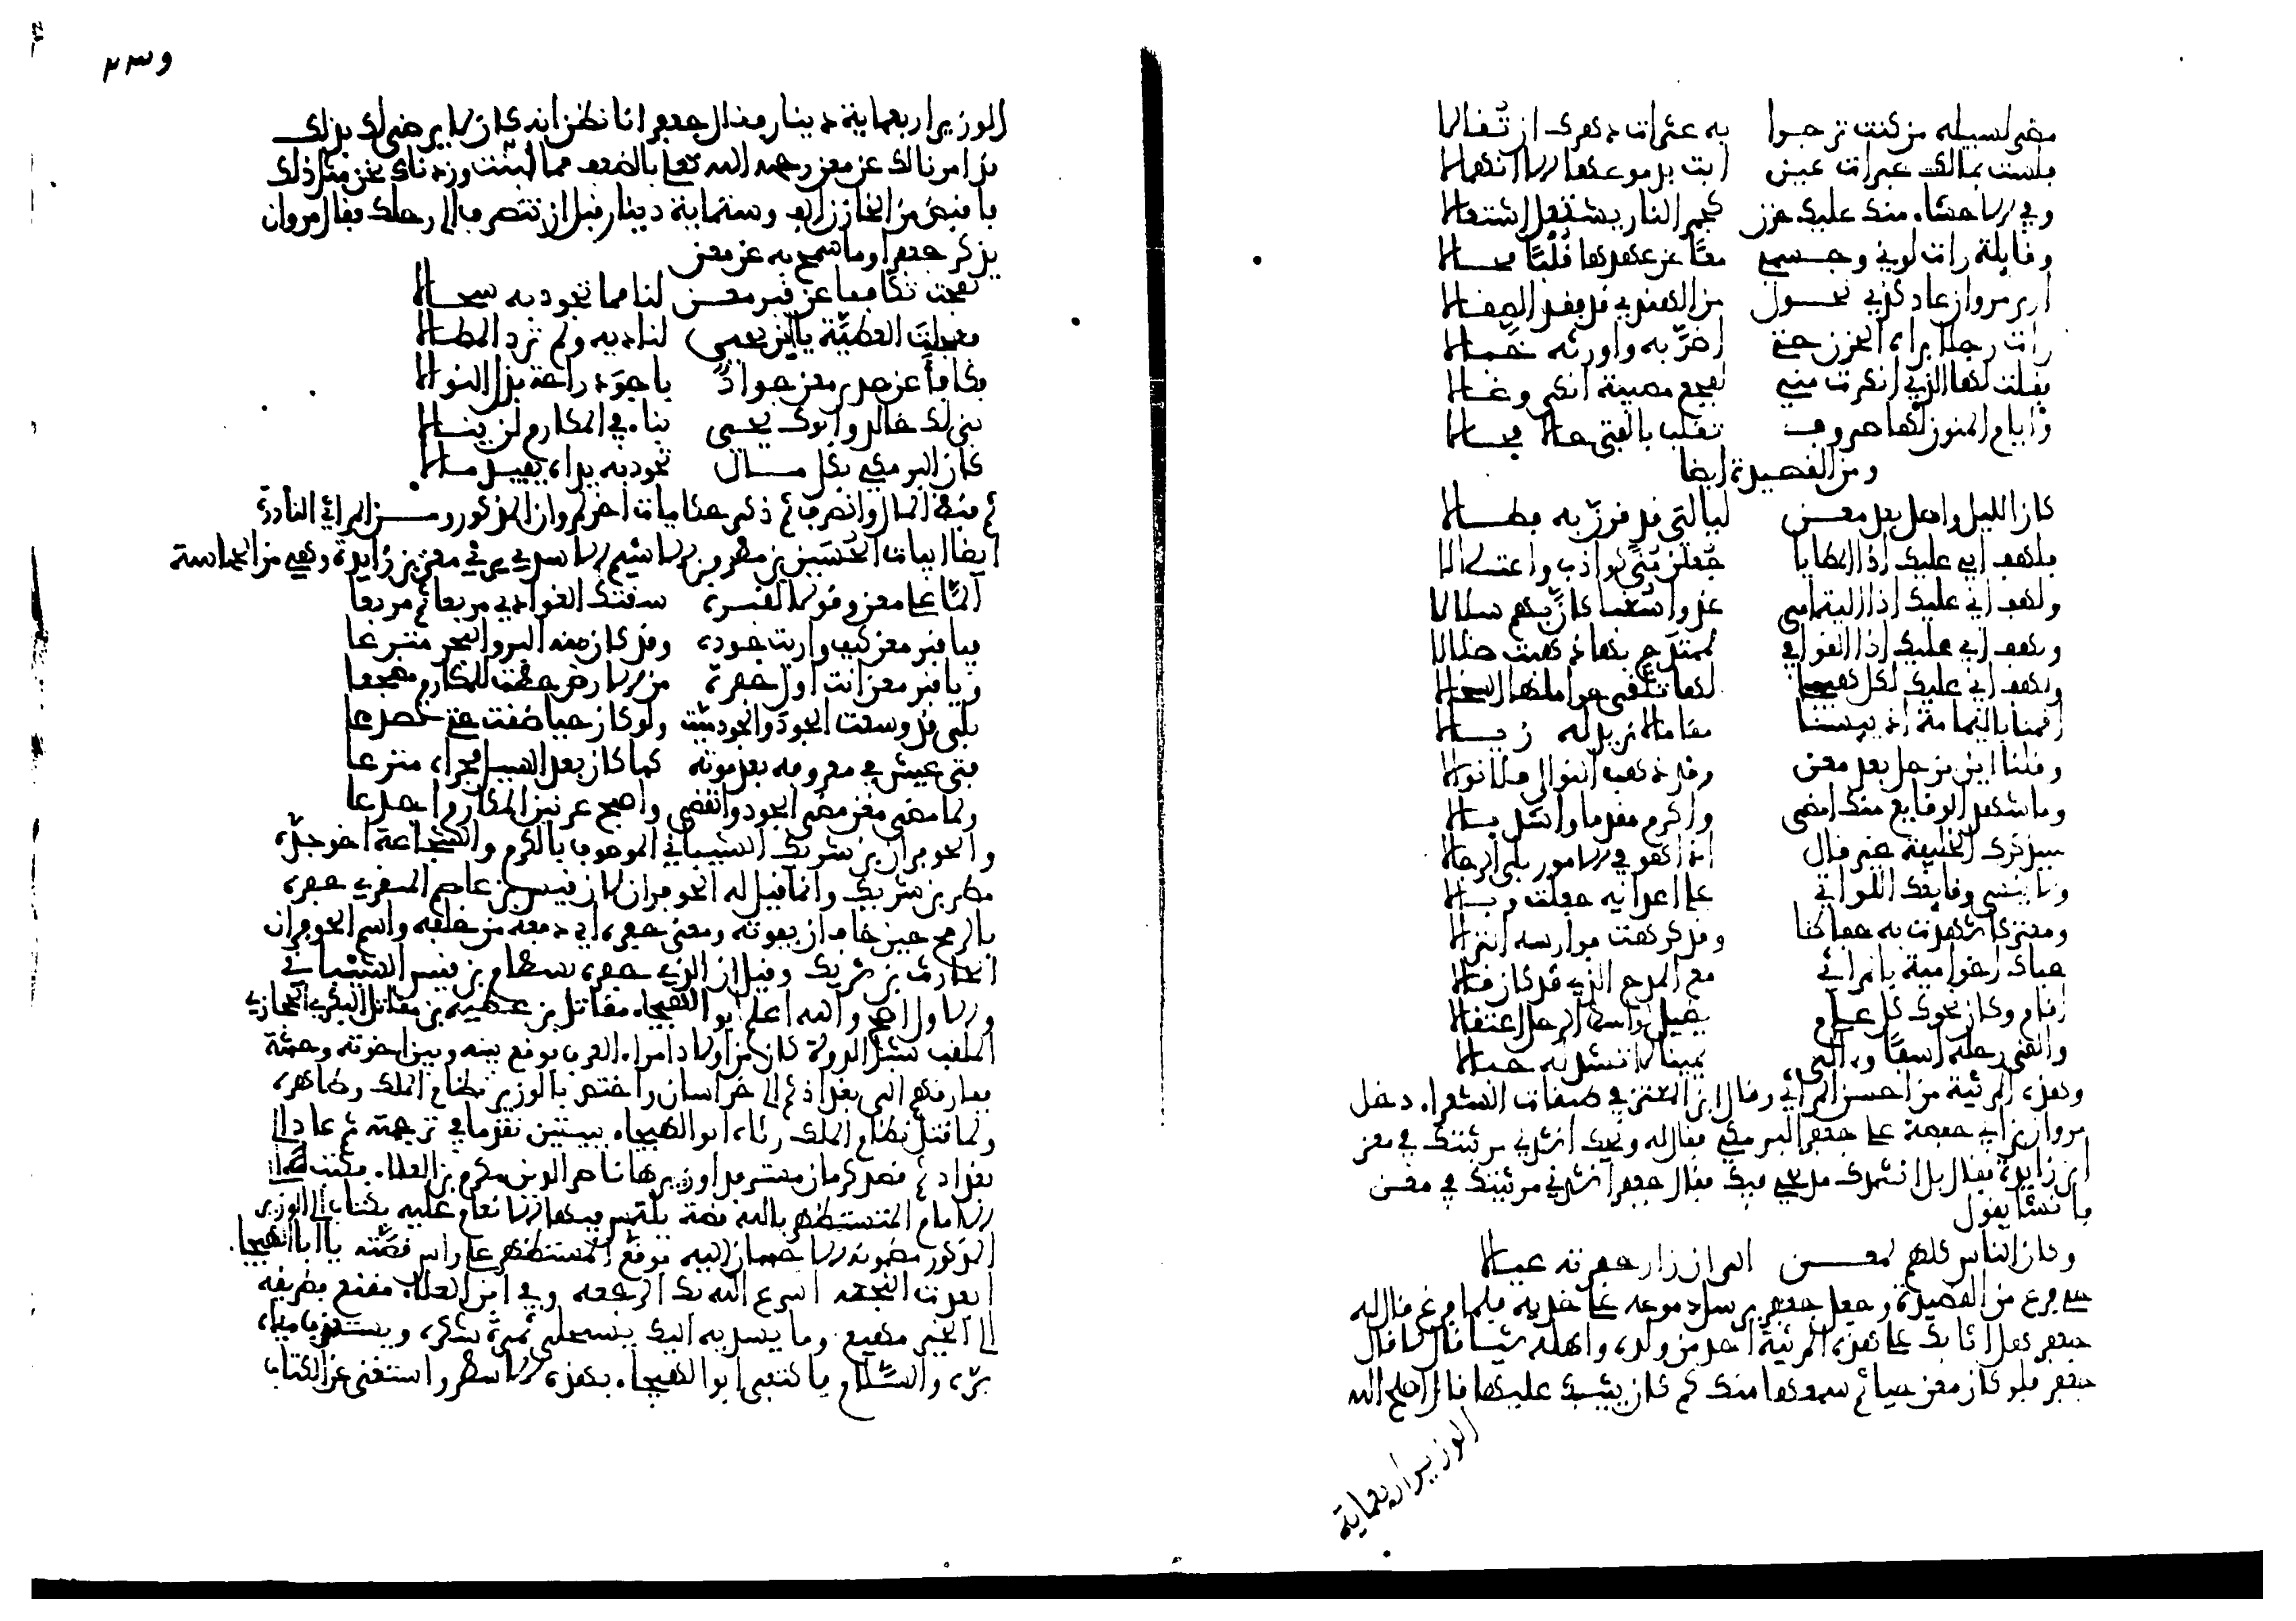 مضى لسبيله من كنت ترجوا به عثرات دهرك ان تقالا
فلست بمالك عبرات عين ابت بدموعها الا انهمالا
وفي الاحشاء منك عليك حزن كحر النار يشتعل اشتعالا
وقايلة رات لوني وجسمي معا عن عهدها قلبا فحالا
ارى مروان عاد كذي نحول من الهندي قد فقد الصقالا
رات رجلا براه الحزن حتى اضر به واورثه خبالا
فقلت لها الذي انكرت مني لفجع مصيبة انكى وغالا
وايام المنون لها صروف تقلب بالفتى حالا فحالا
ومن القصيدة ايضا
كان الليل واصل بعد معن ليالي قد قرن به فطالا
فلهف ابي عليك اذا العطايا جعلن منى كواذب واعتلالا
ولهف ابي عليك اذا اليتامى غدوا شعثا كان بهم سلالا
ولهف ابي عليك اذا القوافي لممتدح بها ذهبت ضلالا
ولهف ابي عليك لكل هيجا لها تلقى حواملها السخالا
اقمنا باليمامة اذ يئسنا مقاما لا نريد له زيالا
وقلنا اين نرحل بعد معن وقد ذهب النوال فلا نوالا
وما شهد الوقايع منك امضى واكرم مقدما واشد بالا
سيذكرك الخليفة غير قال اذا هو في الامور بلى الرجالا
ولا ينسى وقايعك اللواتي على اعدايه جعلت وبالا
ومعتركا شهدت به حفاظا وقد كرهت فوارسه النزالا
حباك اخو امية بالمراثي مع المدح الذي قد كان قالا
اقام وكان نحوك كل عام يطيل بواسط الرحل اعتقالا
والقى رحله اسفا والى يمينا لا تشد له حبالا
وهذه المرثية من احسن المراثي وقال ابن المعتز في طبقات الشعراء دخل
مروان بن ابي حفصة على جعفر البرمكي فقال له ويحك انشدني مرثيتك في معن
ابن زايدة فقال بل انشدك مدحي فيك فقال جعفر انشدني مرثيتك في معن
فانشا يقول
وكان الناس كلهم لمعن الى ان زار حفرته عيالا
حتى فرغ من القصيدة وجعل جعفر يرسل دموعه على خديه فلما فرغ قال له
جعفر هل اثابك على هذه المرثية احد من ولده واهله شيئا قال لا قال
جعفر فلو كان معن حيا ثم سمعها منك كم كان يثيبك عليها قال اصلح الله
الوزير اربعماية
٢٣٥
الوزير اربعماية دينار فقال جعفر انا نظن انه كان لا يرضى لك بذلك
قد امرنا لك عن معن رحمه الله تعالى بالضعف مما ظننت وزدناك نحن مثل ذلك
فاقبض من الخازن الف وستماية دينار قبل ان تنصرف الى رحلك فقال مروان
يذكر جعفرا وما سمح به عن معن
نفحت مكافيا عن قبر معن لنا مما تجود به سجالا
فعجلت العطية يا ابن يحيى لناديه ولم ترد المطالا
فكافا عن صدى معن جواد باجود راحة بذل النوالا
بنى لك خالد وابوك يحيى بناء في المكارم لن ينالا
كان البرمكي بكل مال تجود به يداه يفيد مالا
ثم قبض المال وانصرف ثم ذكر حكايات اخر لمروان المذكور ومن المراثي النادرة
ايضا ابيات الحسين بن مطير بن الاشيم الاسدي يرثي معن بن زايدة وهي من الحماسة
الما على معن وقولا لقبره سقتك الغوادي مربعا ثم مربعا
فيا قبر معن كيف واريت جوده وقد كان منه البر والبحر مترعا
ويا قبر معن انت اول حفرة من الارض خطت للمكارم مضجعا
بلى قد وسعت الجود والجود ميت ولو كان حيا ضقت حتى تصدعا
فتى عيش في معروفه بعد موته كما كان بعد السيل مجراه مترعا
ولما مضى معن مضى الجود وانقضى واصبح عرنين المكارم اجدعا
والحوفزان بن شريك الشيباني الموصوف بالكرم والشجاعة اخو جده
مطر بن شريك وانما قيل له الحوفزان لان قيس بن عاصم المنقري حفزه
بالرمح حين خاف ان يفوته ومعنى حفزه اي دفعه من خلفه واسم الحوفزان
الحارث بن شريك وقيل ان الذي حفزه بسطام بن قيس الشيباني
والاول اصح والله اعلم ابو الهيجاء مقاتل بن عطية بن مقاتل البكري الحجازي
الملقب شبل الدولة كان من اولاد امراء العرب فوقع بينه وبين اخوته وحشة
ففارقهم الى بغداد ثم الى خراسان واختص بالوزير نظام الملك وصاهره
ولما قتل نظام الملك رثاه ابو الهيجاء ببيتين تقدما في ترجمته ثم عاد الى
بغداد ثم قصد كرمان مسترفدا وزيرها ناصر الدين مكرم بن العلاء فكتب الى
الامام المستظهر بالله قصة يلتمس فيها الانعام عليه بكتاب الى الوزير
المذكور مضمونه الاحسان اليه فوقع المستظهر على راس قصته يا ابا الهيجاء
ابعدت النجعه اسرع الله بك الرجعه وفي ابن العلاء مقنع فطريقه
الى الخير مهيع وما يسديه اليك يستحلي ثمرة شكره ويستعذب مياه
بره والسلام فاكتفى ابو الهيجاء بهذه الاسطر واستغنى عن الكتاب